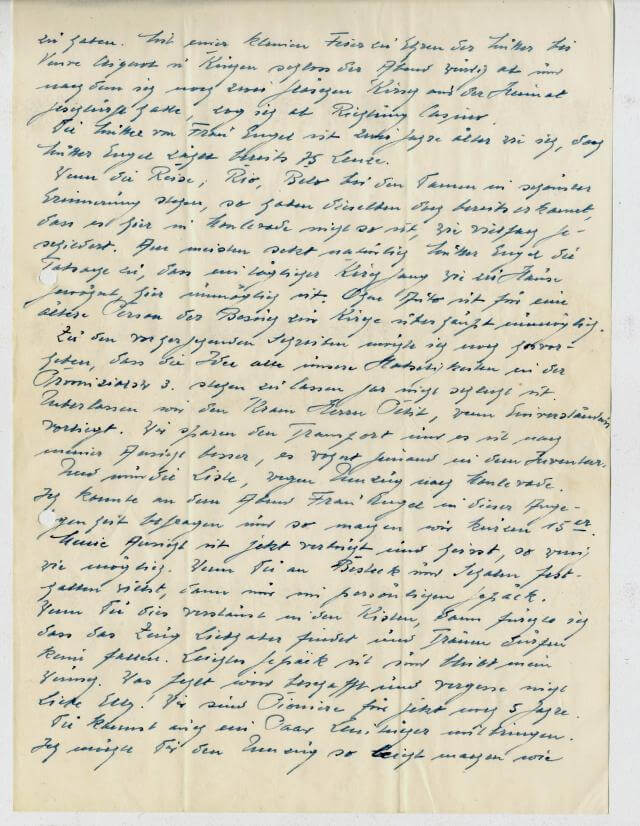 zu haben. Mit einer kleinen Feier zu Ehren der Mutter bei
Verve Cliquot u Kuchen schloss der Abend würdig ab und
nachdem ich noch zwei Kirsch aus der Heimat
geschlürft hatte, zog ich ab Richtung Casino.
Die Mutter von Frau Engel ist zwei Jahre älter wie ich, doch
Mutter Engel zählt bereits 75 Lenze.
Wenn die Reise, Rio, Belo bei den Damen in schönster
Erinnerung stehen, so haben dieselben doch bereits erkannt,
dass es hier in Monlevade nicht so ist, wie vielfach ge-
schildert. Am meisten setzt natürlich Mutter Engel die
Tatsache zu, dass ein täglicher Kirchgang wie zu Hause
gewöhnt, hier unmöglich ist. Ohne Auto ist für eine
ältere Person der Besuch zur Kirche überhaupt unmöglich.
Zu den vorhergehenden Schreiben möchte ich noch hervor-
heben, dass die Idee alle unsere in der
3. stehen zu lassen gar nicht schlecht ist.
Überlassen wir den Kram Herrn Petit, wenn Einverständnis
vorliegt. Wir sparen den Transport und es ist nach
meiner Ansicht besser, es wohnt jemand in dem Inventar.
Und nun die Liste, wegen Umzug nach Monlevade.
Ich konnte an dem Abend Frau Engel in dieser Ange-
genheit befragen und so machen wir kurzen 15er.
Meine Ansicht ist jetzt verbrieft und heisst, so wenig
wie möglich. Wenn Du an Besteck und Schalen fest-
halten willst, dann nur im persönlichen Gepäck.
Wenn Du dies verstaust in den Kisten, dann fürchte ich
dass das Zeug Liebhaber findet und Tränen dürfen
keine fallen. Leichtes Gepäck ist und bleibt mein
Wunsch. Was fehlt wird beschafft und vergesse nicht
liebe Elly. Wir sind Pioniere für jetzt noch 5 Jahre.
Du kannst auch ein Paar mitbringen.
Ich möchte Dir den Umzug so leicht machen wie